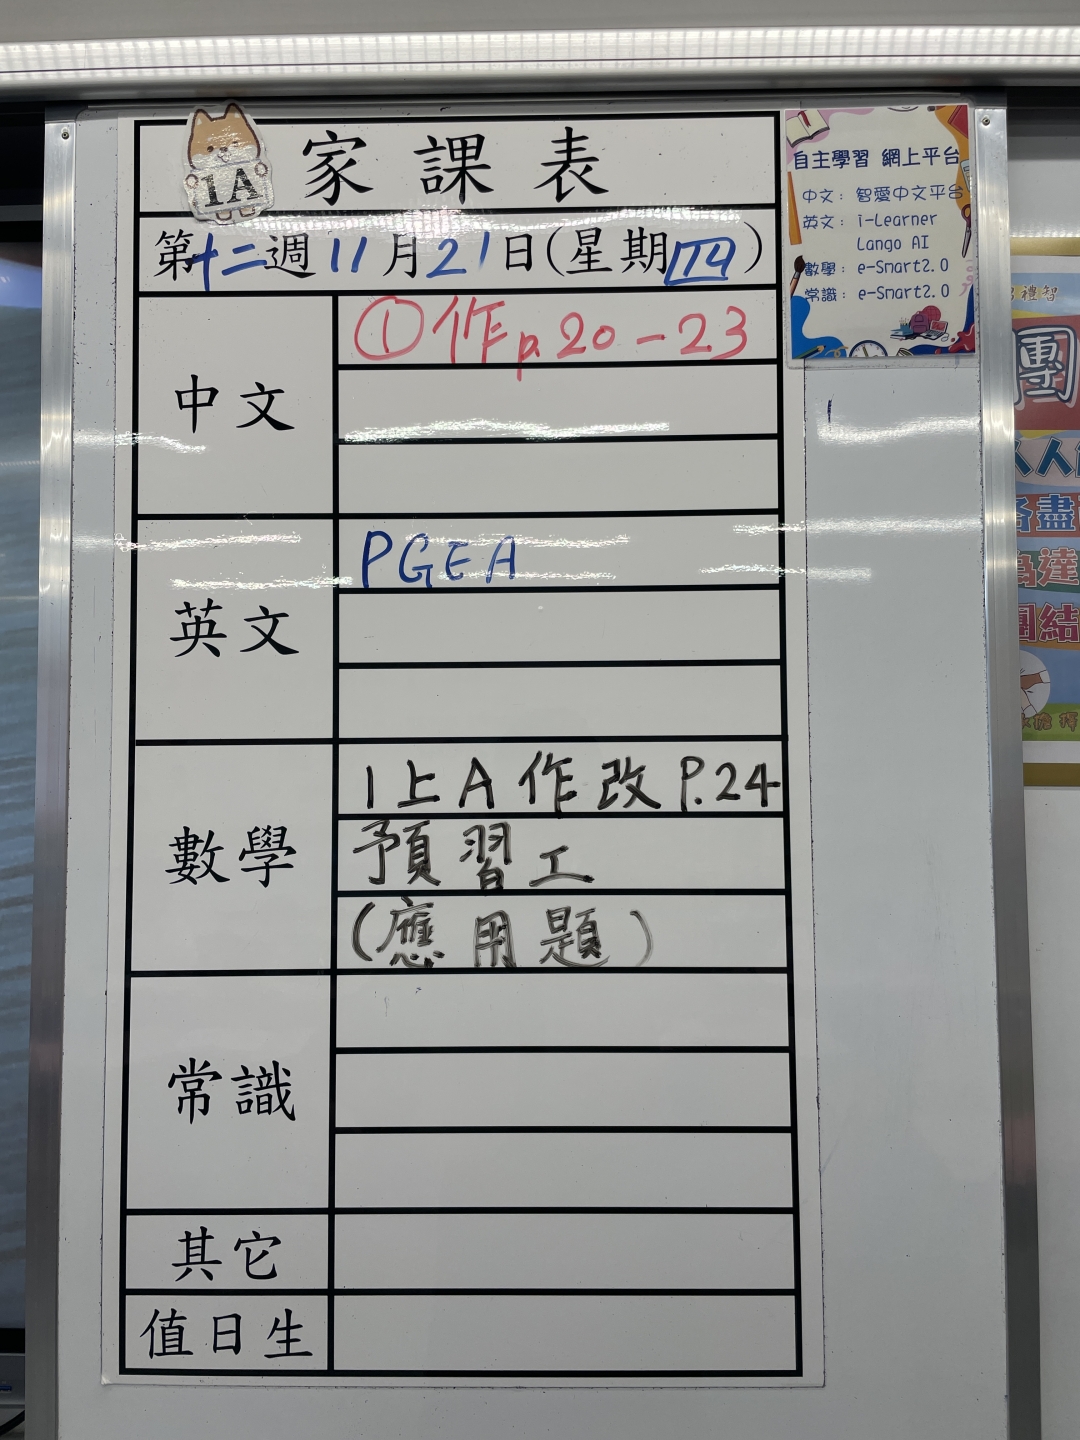 1A
家課表
第十二週11月21日(星期四)
中文
①作p.20-23
英文
PGEA
數學
1上A作改P.24
預習工
(應用題)
常識
其它
值日生
自主學習 網上平台
中文: 智愛中文平台
英文: i-Learner
Lango AI
數學: e-Smart2.0
常識: e-Smart2.0
禮智
團
人人
盡
為達
團結